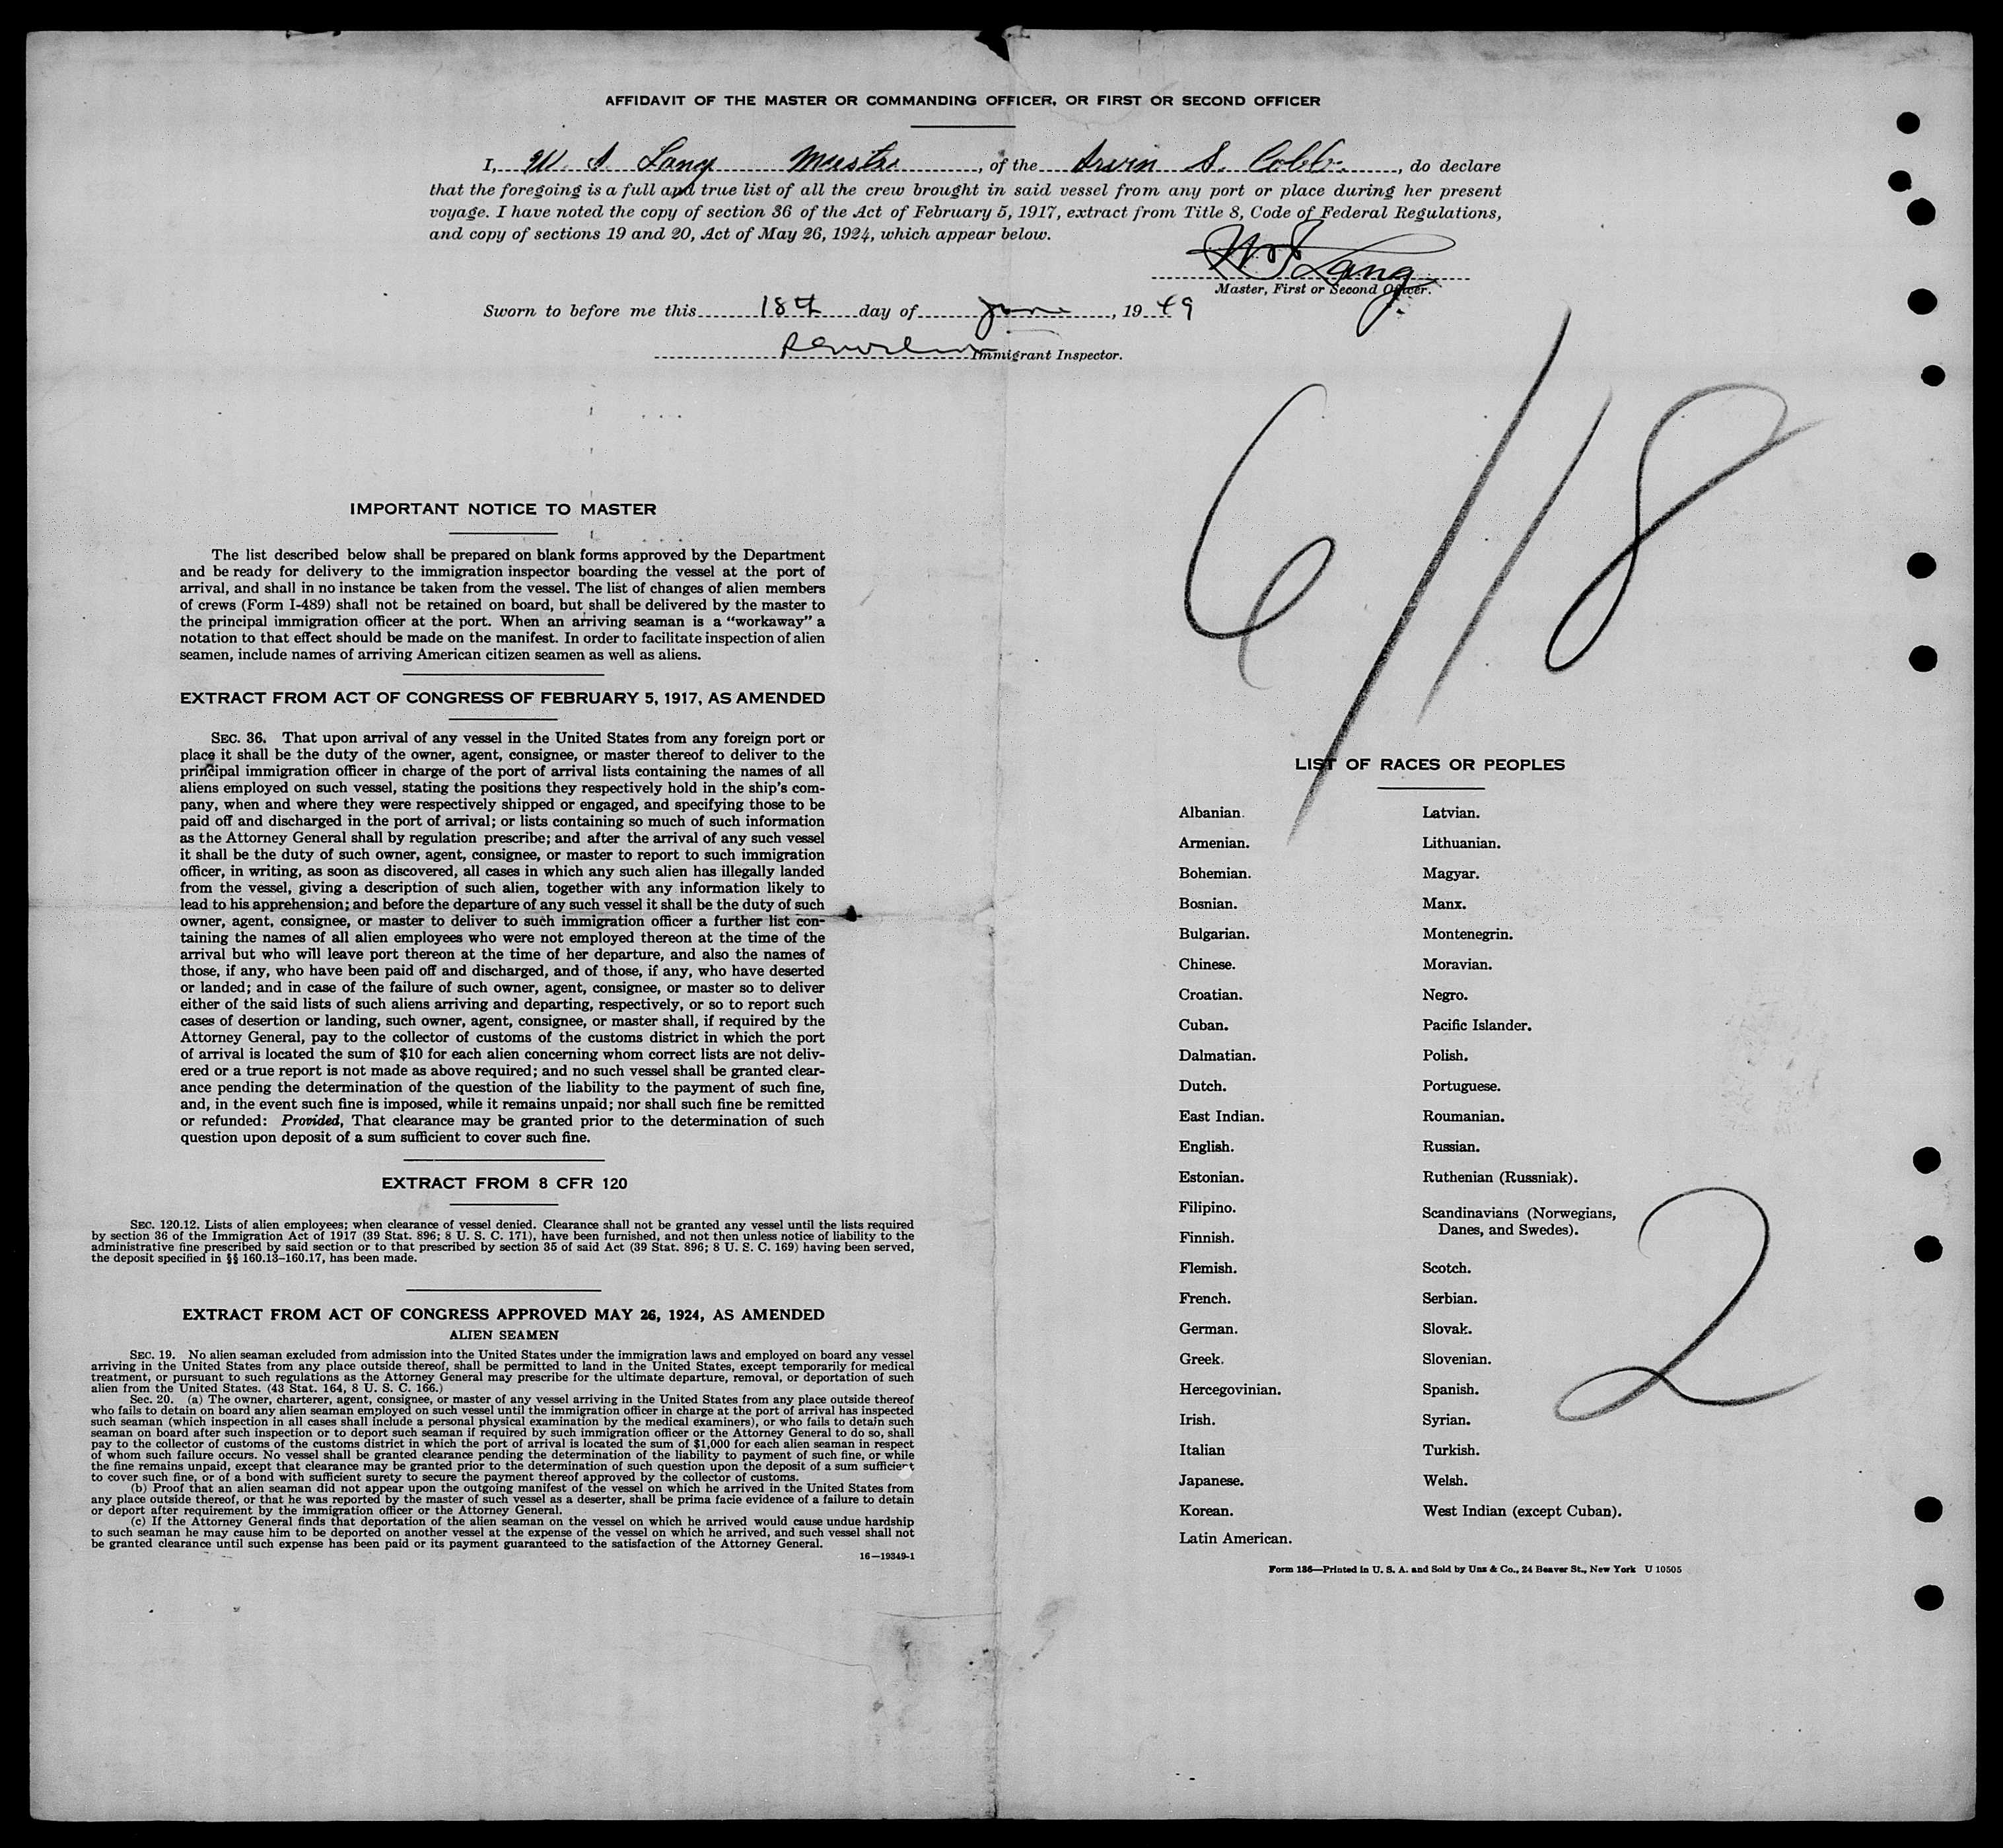 AFFIDAVIT OF THE MASTER OR COMMANDING OFFICER, OR FIRST OR SECOND OFFICER
I, W. S. Lang Master, of the Irvin S. Cobb., do declare
that the foregoing is a full and true list of all the crew brought in said vessel from any port or place during her present
voyage. I have noted the copy of section 36 of the Act of February 5, 1917, extract from Title 8, Code of Federal Regulations,
and copy of sections 19 and 20, Act of May 26, 1924, which appear below.
W S Lang
Master, First or Second Officer.
Sworn to before me this 18th day of June, 1949
Immigrant Inspector.
6/18
IMPORTANT NOTICE TO MASTER
The list described below shall be prepared on blank forms approved by the Department
and be ready for delivery to the immigration inspector boarding the vessel at the port of
arrival, and shall in no instance be taken from the vessel. The list of changes of alien members
of crews (Form I-489) shall not be retained on board, but shall be delivered by the master to
the principal immigration officer at the port. When an arriving seaman is a “workaway” a
notation to that effect should be made on the manifest. In order to facilitate inspection of alien
seamen, include names of arriving American citizen seamen as well as aliens.
EXTRACT FROM ACT OF CONGRESS OF FEBRUARY 5, 1917, AS AMENDED
SEC. 36. That upon arrival of any vessel in the United States from any foreign port or
place it shall be the duty of the owner, agent, consignee, or master thereof to deliver to the
principal immigration officer in charge of the port of arrival lists containing the names of all
aliens employed on such vessel, stating the positions they respectively hold in the ship's com-
pany, when and where they were respectively shipped or engaged, and specifying those to be
paid off and discharged in the port of arrival; or lists containing so much of such information
as the Attorney General shall by regulation prescribe; and after the arrival of any such vessel
it shall be the duty of such owner, agent, consignee, or master to report to such immigration
officer, in writing, as soon as discovered, all cases in which any such alien has illegally landed
from the vessel, giving a description of such alien, together with any information likely to
lead to his apprehension; and before the departure of any such vessel it shall be the duty of such
owner, agent, consignee, or master to deliver to such immigration officer a further list con-
taining the names of all alien employees who were not employed thereon at the time of the
arrival but who will leave port thereon at the time of her departure, and also the names of
those, if any, who have been paid off and discharged, and of those, if any, who have deserted
or landed; and in case of the failure of such owner, agent, consignee, or master so to deliver
either of the said lists of such aliens arriving and departing, respectively, or so to report such
cases of desertion or landing, such owner, agent, consignee, or master shall, if required by the
Attorney General, pay to the collector of customs of the customs district in which the port
of arrival is located the sum of $10 for each alien concerning whom correct lists are not deliv-
ered or a true report is not made as above required; and no such vessel shall be granted clear-
ance pending the determination of the question of the liability to the payment of such fine,
and, in the event such fine is imposed, while it remains unpaid; nor shall such fine be remitted
or refunded: Provided, That clearance may be granted prior to the determination of such
question upon deposit of a sum sufficient to cover such fine.
EXTRACT FROM 8 CFR 120
SEC. 120.12. Lists of alien employees; when clearance of vessel denied. Clearance shall not be granted any vessel until the lists required
by section 36 of the Immigration Act of 1917 (39 Stat. 896; 8 U. S. C. 171), have been furnished, and not then unless notice of liability to the
administrative fine prescribed by said section or to that prescribed by section 35 of said Act (39 Stat. 896; 8 U. S. C. 169) having been served,
the deposit specified in §§ 160.13–160.17, has been made.
EXTRACT FROM ACT OF CONGRESS APPROVED MAY 26, 1924, AS AMENDED
ALIEN SEAMEN
SEC. 19. No alien seaman excluded from admission into the United States under the immigration laws and employed on board any vessel
arriving in the United States from any place outside thereof, shall be permitted to land in the United States, except temporarily for medical
treatment, or pursuant to such regulations as the Attorney General may prescribe for the ultimate departure, removal, or deportation of such
alien from the United States. (43 Stat. 164, 8 U. S. C. 166.)
Sec. 20. (a) The owner, charterer, agent, consignee, or master of any vessel arriving in the United States from any place outside thereof
who fails to detain on board any alien seaman employed on such vessel until the immigration officer in charge at the port of arrival has inspected
such seaman (which inspection in all cases shall include a personal physical examination by the medical examiners), or who fails to detain such
seaman on board after such inspection or to deport such seaman if required by such immigration officer or the Attorney General to do so, shall
pay to the collector of customs of the customs district in which the port of arrival is located the sum of $1,000 for each alien seaman in respect
of whom such failure occurs. No vessel shall be granted clearance pending the determination of the liability to payment of such fine, or while
the fine remains unpaid, except that clearance may be granted prior to the determination of such question upon the deposit of a sum sufficient
to cover such fine, or of a bond with sufficient surety to secure the payment thereof approved by the collector of customs.
(b) Proof that an alien seaman did not appear upon the outgoing manifest of the vessel on which he arrived in the United States from
any place outside thereof, or that he was reported by the master of such vessel as a deserter, shall be prima facie evidence of a failure to detain
or deport after requirement by the immigration officer or the Attorney General.
(c) If the Attorney General finds that deportation of the alien seaman on the vessel on which he arrived would cause undue hardship
to such seaman he may cause him to be deported on another vessel at the expense of the vessel on which he arrived, and such vessel shall not
be granted clearance until such expense has been paid or its payment guaranteed to the satisfaction of the Attorney General.
16—19349-1
LIST OF RACES OR PEOPLES
Albanian.
Armenian.
Bohemian.
Bosnian.
Bulgarian.
Chinese.
Croatian.
Cuban.
Dalmatian.
Dutch.
East Indian.
English.
Estonian.
Filipino.
Finnish.
Flemish.
French.
German.
Greek.
Hercegovinian.
Irish.
Italian
Japanese.
Korean.
Latin American.
Latvian.
Lithuanian.
Magyar.
Manx.
Montenegrin.
Moravian.
Negro.
Pacific Islander.
Polish.
Portuguese.
Roumanian.
Russian.
Ruthenian (Russniak).
Scandinavians (Norwegians,
Danes, and Swedes).
Scotch.
Serbian.
Slovak.
Slovenian.
Spanish.
Syrian.
Turkish.
Welsh.
West Indian (except Cuban).
2
Form 186—Printed in U. S. A. and Sold by Unz & Co., 24 Beaver St., New York U 10505